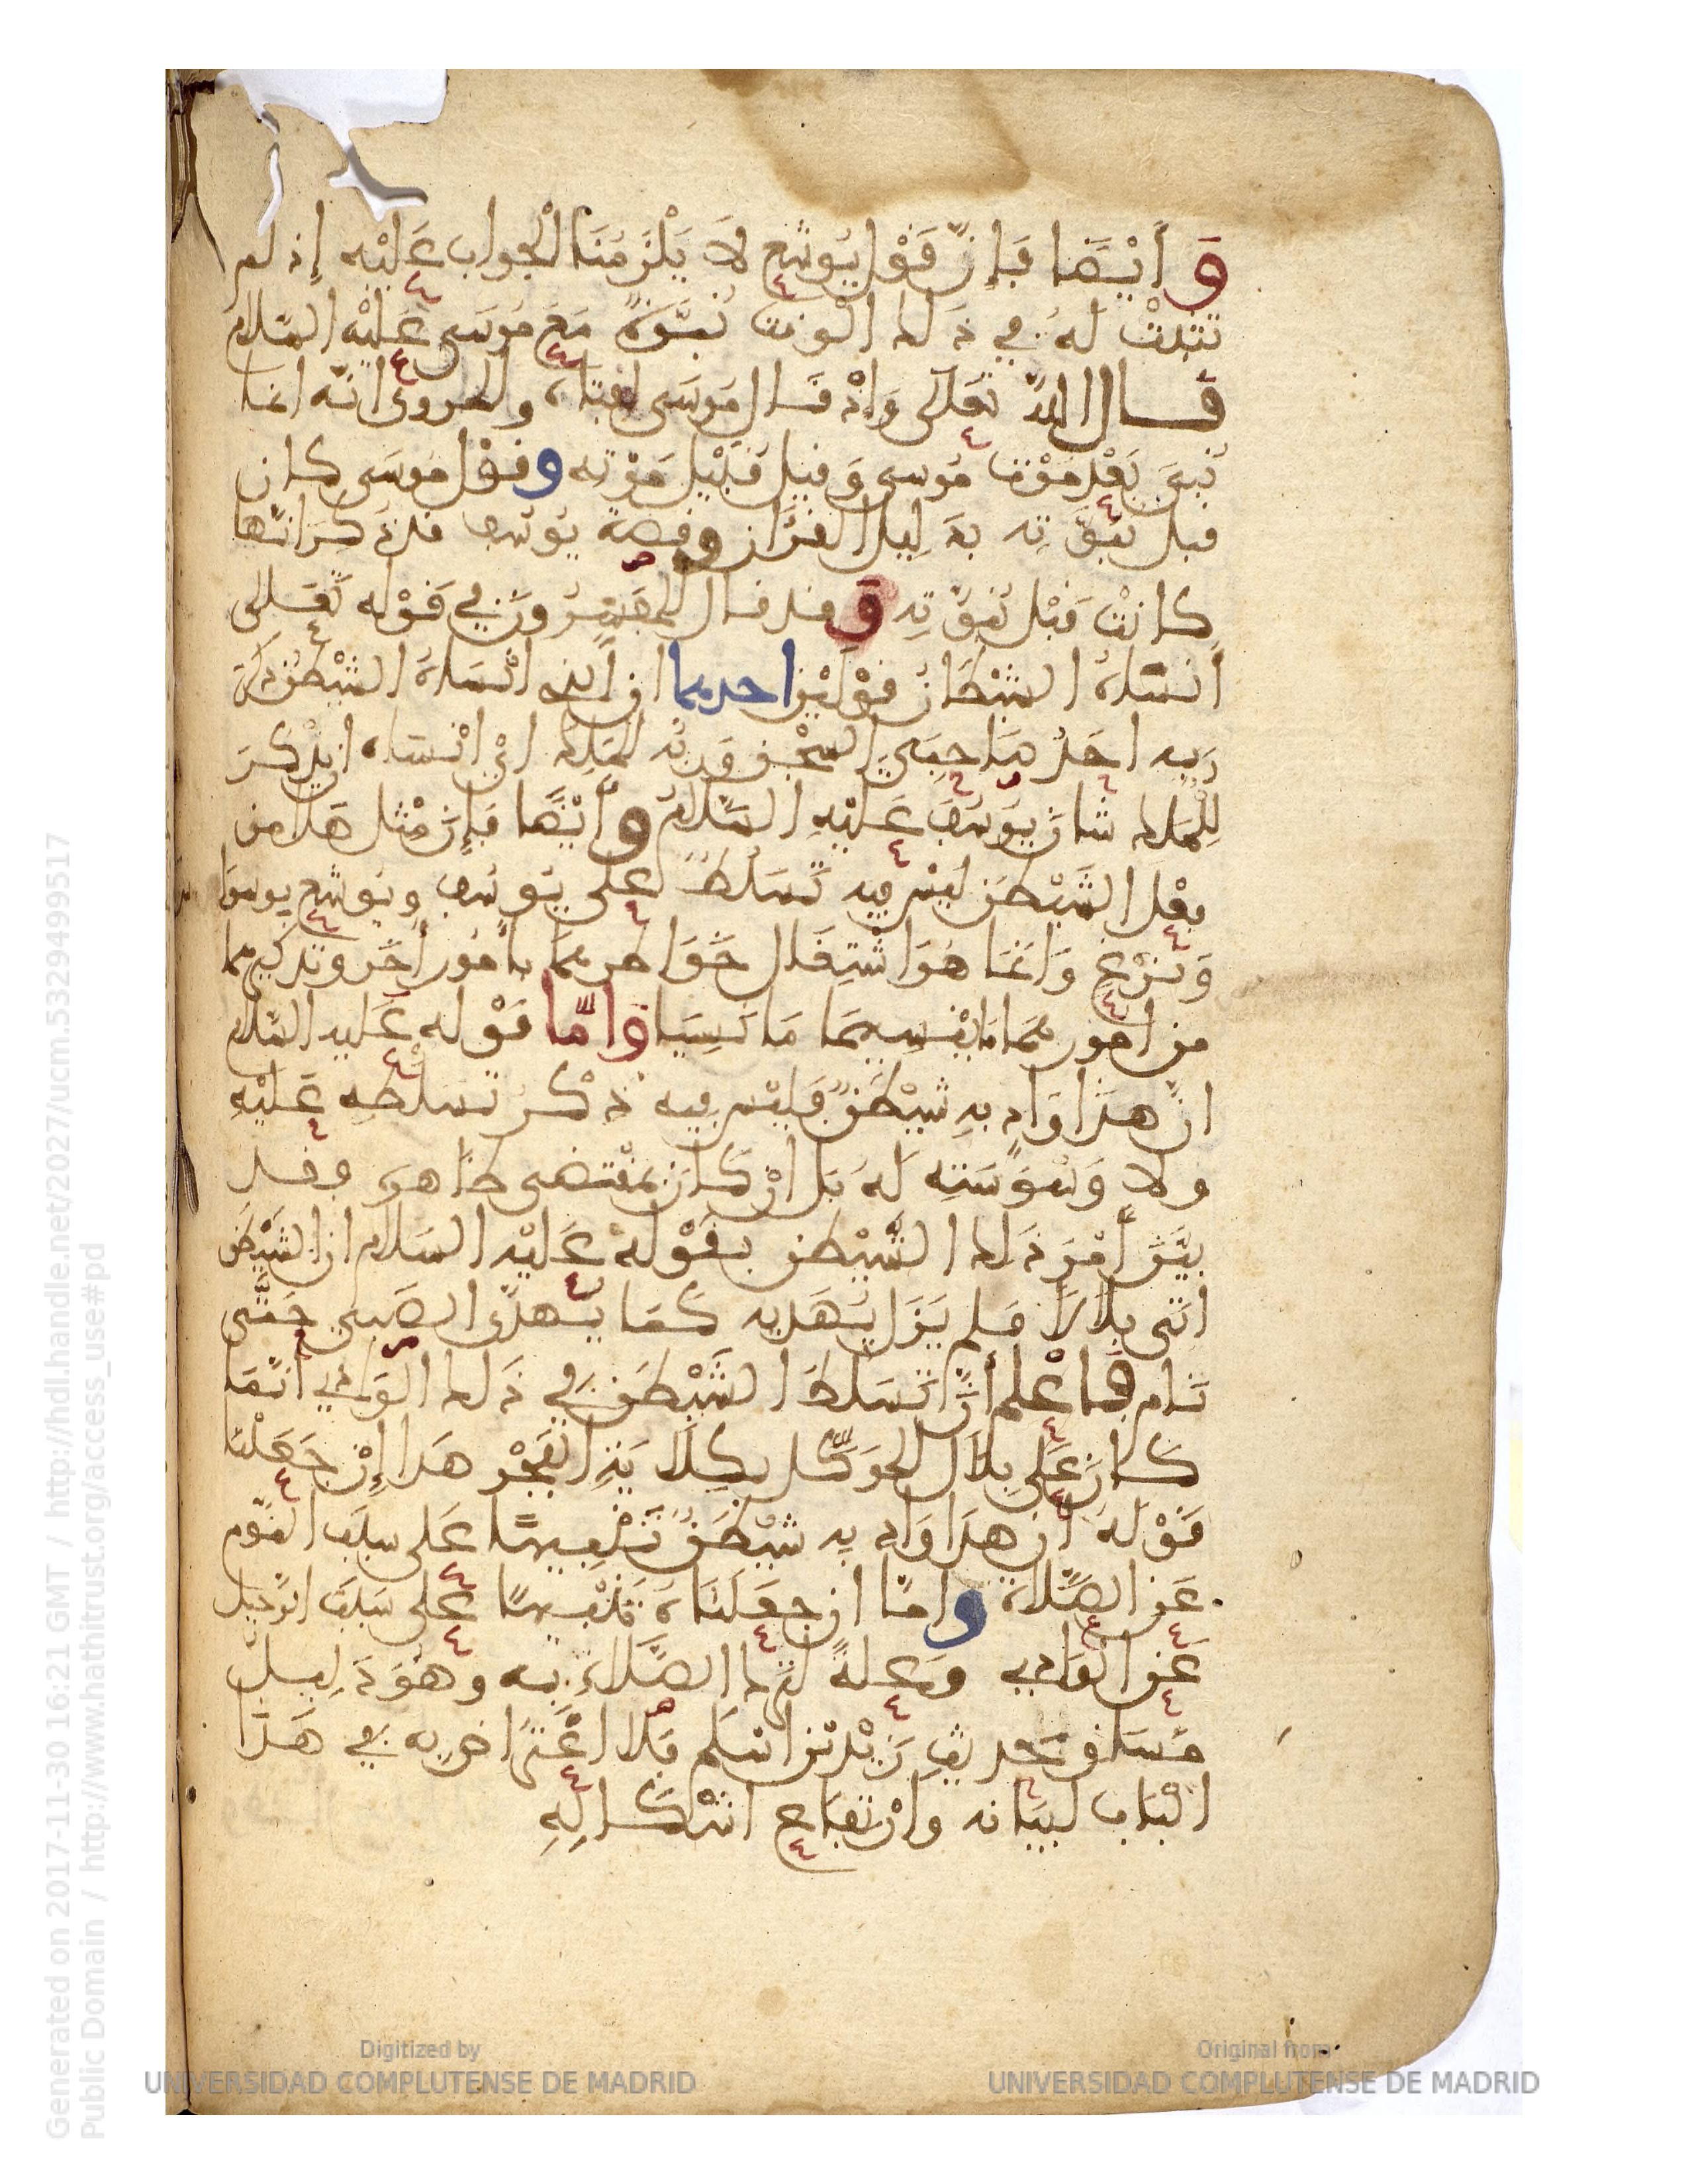 وَأَيْضًا فَإِنَّ قَوْلَ يُوشَع لَا يَلْزَمُنَا الْجواب عَلَيْهِ إِذ لم
تثبتْ لَهُ في ذَلك الْوقت نُبوّةٌ مَعَ مُوسَى عَلَيْهِ السّلام
قال اللهُ تعَلَى وَإِذْ قَال مُوسَى لفتاه والمروى انّه انما
نُبِّئَ بَعْد مَوْت مُوسى وَقيل قُبَيْل مَوْته وقوْل مُوسَى كان
قبل نبوّته بدَلِيل الْقرْءَان وقصة يُوسُف قد ذُكِرَ انّها
كانتْ قَبْل نُبوّتِهِ وَقد قال الْمُفَسِّرُونَ في قَوْله تَعَلى
أَنسَاهُ الشيْطَانُ قوْلَيْن احدهما ان الذي انْسَاهُ الشيْطَنُ ذِكْرَ
رَبِه احَدُ صَاحِبَيِ السِّجْن وَرَبُّه الْمَلِك اىْ انْسَاه ان يذْكُرَ
لِلْمَلِك شانَ يُوسُفَ عَلَيْهِ السَّلَامُ وأَيْضًا فَإِنَّ مثْل هَذَا من
فِعْل الشَّيْطَن لَيْس فِيه تَسَلُّطٌ عَلَى يُوسُف ويُوشع بوسوَا
وَنَزْغٍ وَانمَا هُوَ اشْتِغَال خَوَاطرهما بأُمُور أُخَر وتذكيرهما
من امُورهما مَا يُنْسِيهِمَا مَا نَسِيَا وَامَّا قَوْله عَلَيه السّلَام
انّ هَذَا وَادٍ بهِ شَيْطَنٌ فَليْس فِيه ذِكْرُ تسَلّطِه عَلَيْهِ
ولا وَسْوَسَتِه لَهُ بَل انْ كَان بمُقْتضى ظَاهرِه وقد
بيَّنَ أَمْرَ ذَلك الشَّيْطن بقَوْلهِ عَلَيْه السَلام ان الشَّيْطَنَ
اتَى بِلَالًا فلم يَزَل يُهَدِّيه كَمَا يُهَدَّى الصَّبِىُّ حَتَّى
نَام فاعْلم أَنَّ تَسَلُّطَ الشَّيْطَنِ في ذَلك الوَادي انّمَا
كَانَ عَلَى بِلَالٍ الْمُوَكَّل بكِلَايَةِ الْفَجْر هذا إِنْ جَعَلْنَا
قَوْلهُ انّ هذَا وَادٍ بِه شَيْطَنٌ تَنْبِيهًا عَلَى سَبَب النَّوْم
عَنِ الصَّلَاة وامّا ان جعَلنَاهُ تَنْبِيهًا عَلَى سَبَب الرّحيل
عَنِ الوَادِي وَعِلةً لتَرْك الصَّلَاة بِه وهُوَ دَلِيلُ
مَسَاق حَدِيثِ زَيْد بْن أسْلَم فَلَا اعْتِرَاض بِه في هَذَا
الْبَاب لبَيَانه وارْتفَاع اشْكَالِهِ